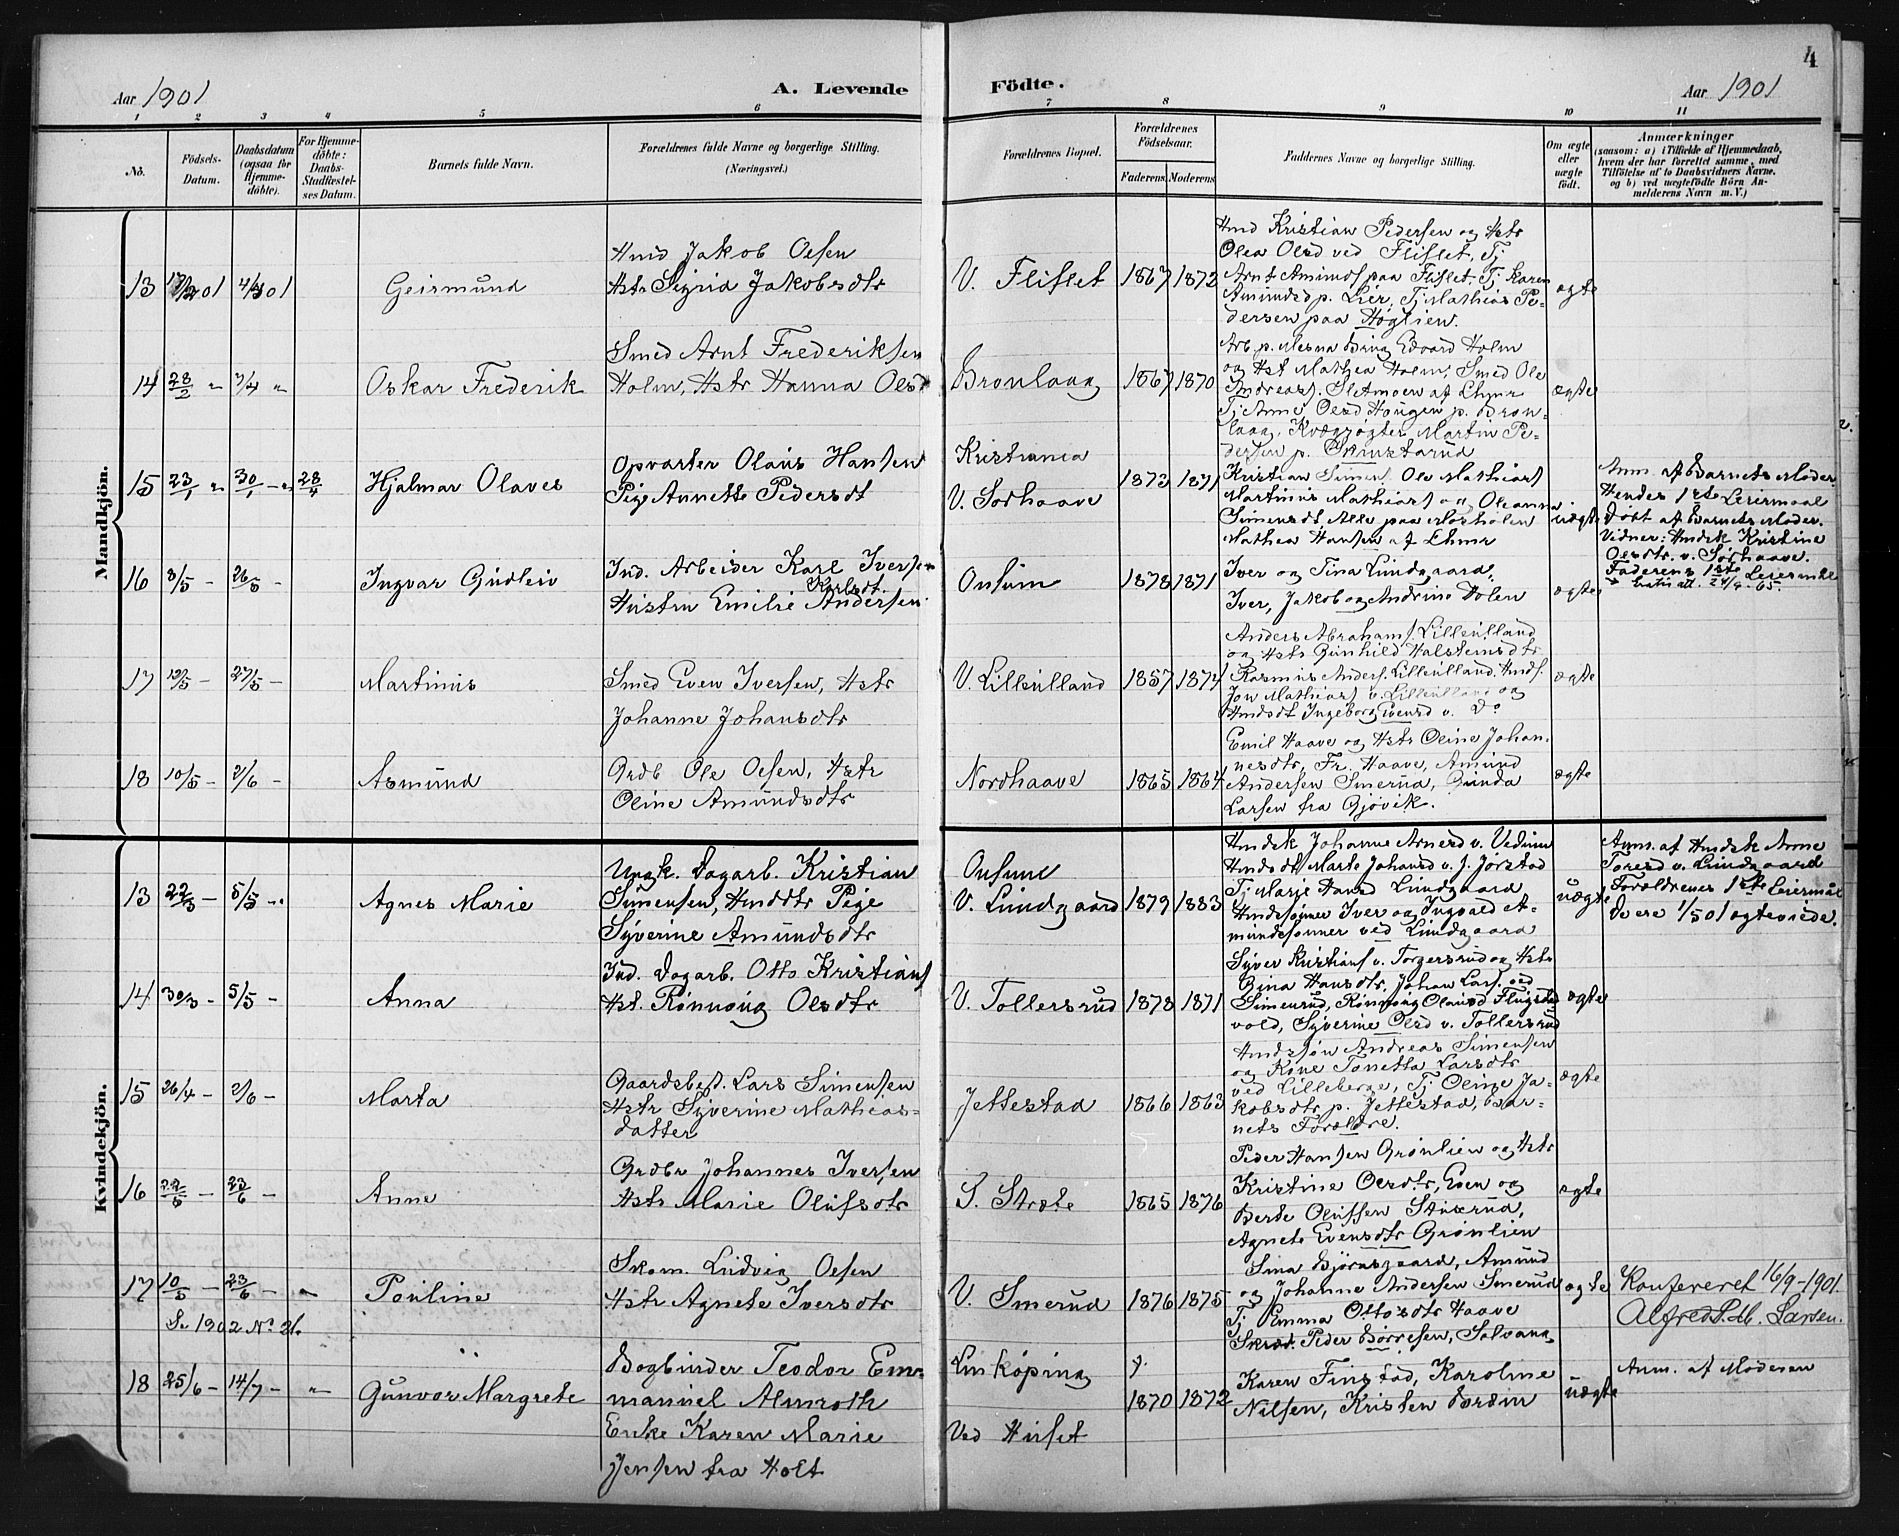 4
Aar 1901
A. Levende Födte.
Aar 1901
1 2 3 4 5 6 7 8 9 10 11
No.
Födsels-Datum.
Daabsdatum (ogsaa for Hjemme-döbte).
For Hjemme-döbte: Daabs-Stadfæstel-ses Datum.
Barnets fulde Navn.
Forældrenes fulde Navne og borgerlige Stilling.
(Næringsvei.)
Forældrenes Bopæl.
Forældrenes Födselsaar.
Faderens. Moderens.
Faddernes Navne og borgerlige Stilling.
Om ægte eller uægte födt.
Anmærkninger
(saasom: a) i Tilfælde af Hjemmedaab,
hvem der har forrettet samme, med
Tilföielse af to Daabsvidners Navne.
og b) ved uægtefödte Börn An-
melderens Navn m. V.)
Mandkjön.
13
4/3 01
Geirmund
Hmd Jakob Olsen
Hstr Sigrid Jakobsdtr
V. Fliflet
1867 1872
Hmd Kristian Pedersen og Hstr
Olea Olsd ved Fliflet, Tj
Arnt Amunds. paa Fliflet, Tj. Karen
Amundsd p. Lier, Tj Mathias Pe-
dersen paa Høglien.
ægte
14 28/2 "
Oskar Frederik
Smed Arnt Frederiksen
Holm, Hstr Hanna Olsd
Bronlaag
1867 1870
Arb p. Mesna Brug Edvard Holm
og Hst Mathea Holm, Smed Ole
Andreass. Sletmoen af Lhmr
Tj Anne Olsd Haugen p. Bron-
laag, Kvægrøgter Martin Pe-
dersen p. Skinstarud
ægte
15 23/1 " 30/1 - " 28/4
Hjalmar Olaves
Opvarter Olaus Hansen
Pige Annette Pedersdt
Kristiania
V. Sørhaave
1873 1871
Kristian Simens. Ole Mathias
Martinus Mathias og Oleanna
Simensdt. Alle paa Mosholen
Mathea Hansen af Lhmr
uægte
Anm. af Barnets Moder.
Hendes 1ste Leiermaal
Døbt af Barnets Moder.
Vidner: Hmdsk Kristine
Olsdtr. v. Sørhaave.
Faderens 1ste Leiermaal
16 8/5 - 26/5 -
Ingvar Gudleiv
Ind. Arbeider Karl Iversen
Hustru Emilie Karlsdt. Andersen
Onsum
1878 1871
Iver og Tina Lundgaard,
Iver, Jakob og Andrine Holen
ægte
17 27/5 -
Martinus
Smed Even Iversen, Hstr
Johanne Johansdtr
V. Lilleulland
1857 1874
Anders Abrahams. Lilleulland
og Hstr Gunhild Halsteinsdtr
Rasmus Anders. Lilleulland, Hmds.
Jon Mathias v. Lilleulland og
Hmdsdt Ingeborg Evensd v. Do
ægte
18 10/5 - 2/6 -
Asmund
Grdb Ole Olsen, Hstr
Oline Amundsdtr
Nordhaave
1865 1864
Emil Haave og Hstr Oline Johan-
nesdtr, Fr. Haave, Amund
Andersen Smerud, Gunda
Larsen fra Gjøvik.
ægte
Kvindekjön.
13 22/3 - 5/5 -
Agnes Marie
Ungk. Dagarb. Kristian
Simensen, Hmddtr Pige
Syverine Amundsdtr
Onsum
V. Lundgaard
1879 1883
Hmdsk Johanne Arnesd v. Vedum
Hmdsdt Marte Johansd v. J. Jørstad
Tj Marje Hansd Lundgaard
Hmdssønner Iver og Ingvald A-
mundssønner ved Lundgaard
uægte
Anm. af Hmdsk Anne
Toresd v. Lundgaard
Forældrenes 1ste Leiermaal
De ere 1/5 01 ægteviede.
14 30/3 - 5/5 -
Anna
Ind. Dagarb. Otto Kristians
Hst. Rønnaug Olsdtr
V. Tollersrud
1878 1871
Syver Kristians v. Torgersrud og Hstr
Gina Hansdtr, Johan Lars. ved
Simenrud, Rønnaug Olausd Flugstad
vold, Syverine Olsd v. Tollersrud
ægte
15 26/4 - 2/6 -
Marta
Gaardsbest. Lars Simensen
Hstr Syverine Mathias-
datter
Jettestad
1866 1863
Hmdssøn Andreas Simensen
og Kone Tonetta Larsdtr
ved Lilleberge, Tj Oline Ja-
kobsdtr p. Jettestad, Bar-
nets Forældre.
ægte
16 23/6 -
Anne
Grdbr Johannes Iversen
Hstr Marie Olufsdtr
S. Stræte
1865 1876
Peder Hansen Grønlien og Hstr
Kristine Olsdtr, Even og
Berte Olufsen Stuerud,
Agnete Evensdtr Grønlien
ægte
17 10/5 - 23/6 - "
Se 1902 No 21.
Pouline
Skom. Ludvig Olsen
Hstr Agnete Iversdtr
V. Smerud
1876 1875
Sina Bjørnsgaard, Amund
og Johanne Andersen Smerud
Tj Emma Ottosdtr Haave
Skræd. Peder Børresen, Solvang
ægte
Konfereret 16/9-1901.
Alfred S. M. Larsen.
18 25/6 - 14/7 - "
Gunvor Margrete
Bogbinder Teodor Em-
manuel Almroth
Enke Karen Marie
Jensen fra Holt
Linköping
Ved Hufset
1870 1872
Karen Finstad, Karoline
Nilsen, Kristen Bredin
uægte
Anm. af Moderen